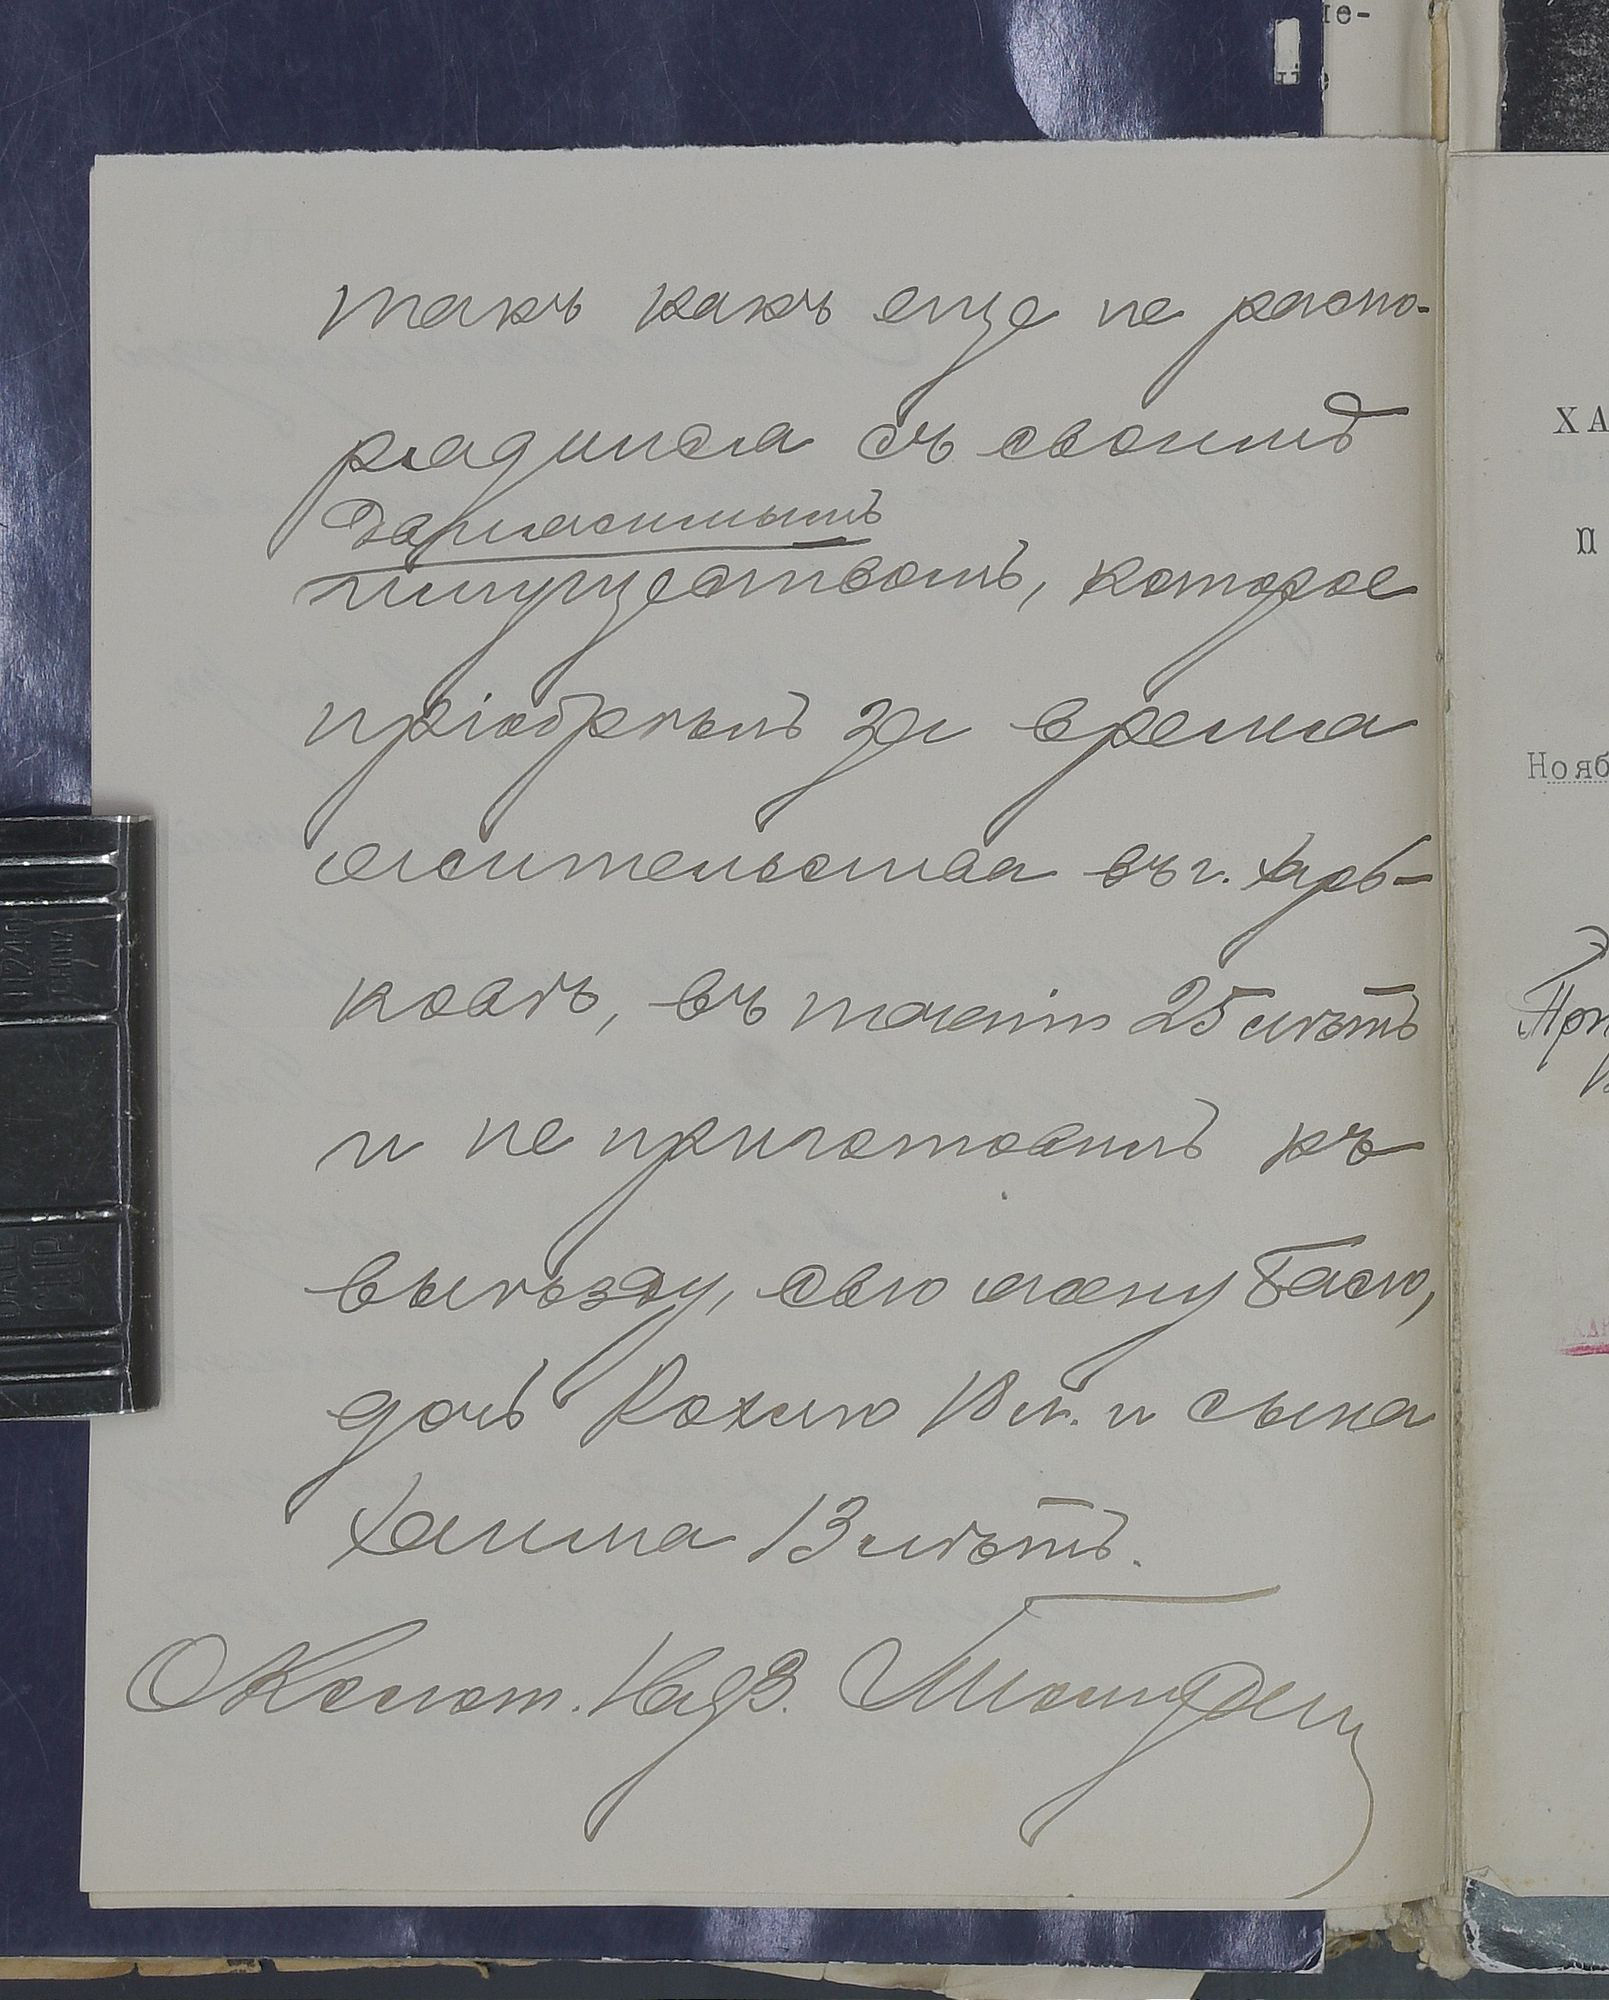 такъ какъ еще не распо-
рядился съ своимъ
домашнимъ
имуществомъ, которое
пріобрѣлъ за время
жительства въ г. Харь-
ковѣ, въ теченіи 25 лѣтъ
и не приготовилъ къ
выѣзду, свою жену Басю,
дочь Рохлю 18 л. и сына
Хаима 13 лѣтъ.
Околот. Надз.
ХА
П
Нояб